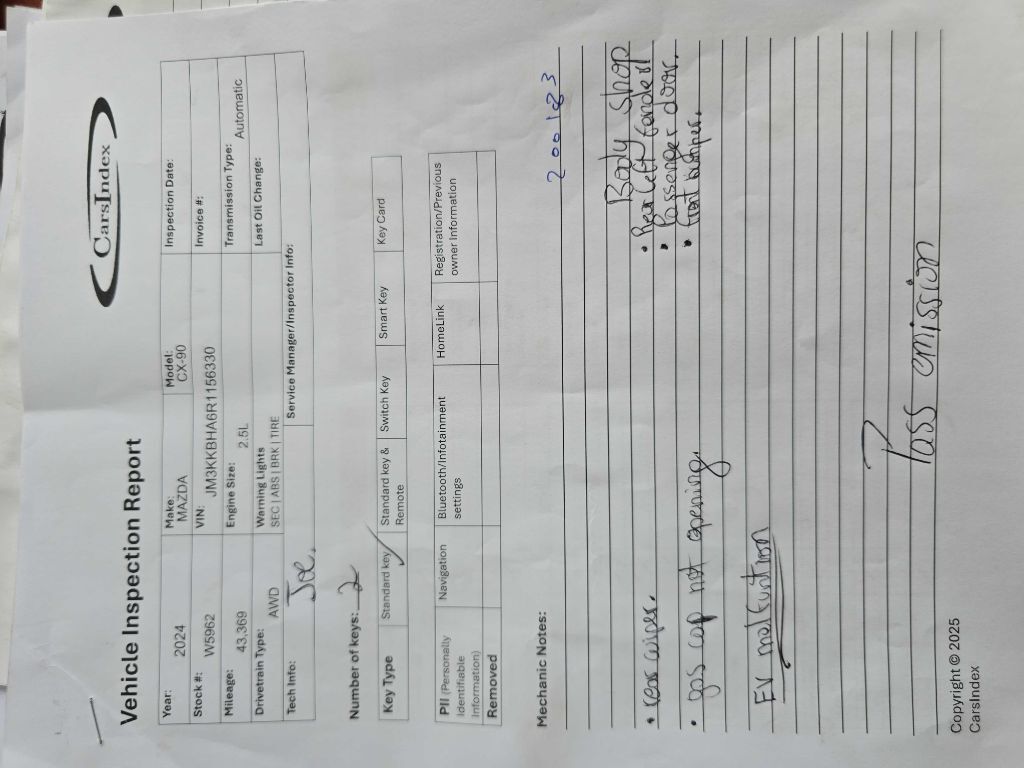 CarsIndex
Vehicle Inspection Report
Year: 2024 Make: MAZDA Model: CX-90 Inspection Date:
Stock #: W5962 VIN: JM3KKBHA6R1156330 Invoice #:
Mileage: 43,369 Engine Size: 2.5L Transmission Type: Automatic
Drivetrain Type: AWD Warning Lights SEC | ABS | BRK | TIRE Last Oil Change:
Tech Info: Joe. Service Manager/Inspector Info:
Number of keys: 2
Key Type Standard key ✓ Standard key & Remote Switch Key Smart Key Key Card
PII (Personally Identifiable Information) Removed Navigation Bluetooth/Infotainment settings HomeLink Registration/Previous owner Information
Mechanic Notes:
200183
Body Shop
• rear wiper. • Rear left fender
• gas cap not opening. • Passenger door.
• front bumper.
EV malfuntion
Pass emission
Copyright © 2025
CarsIndex